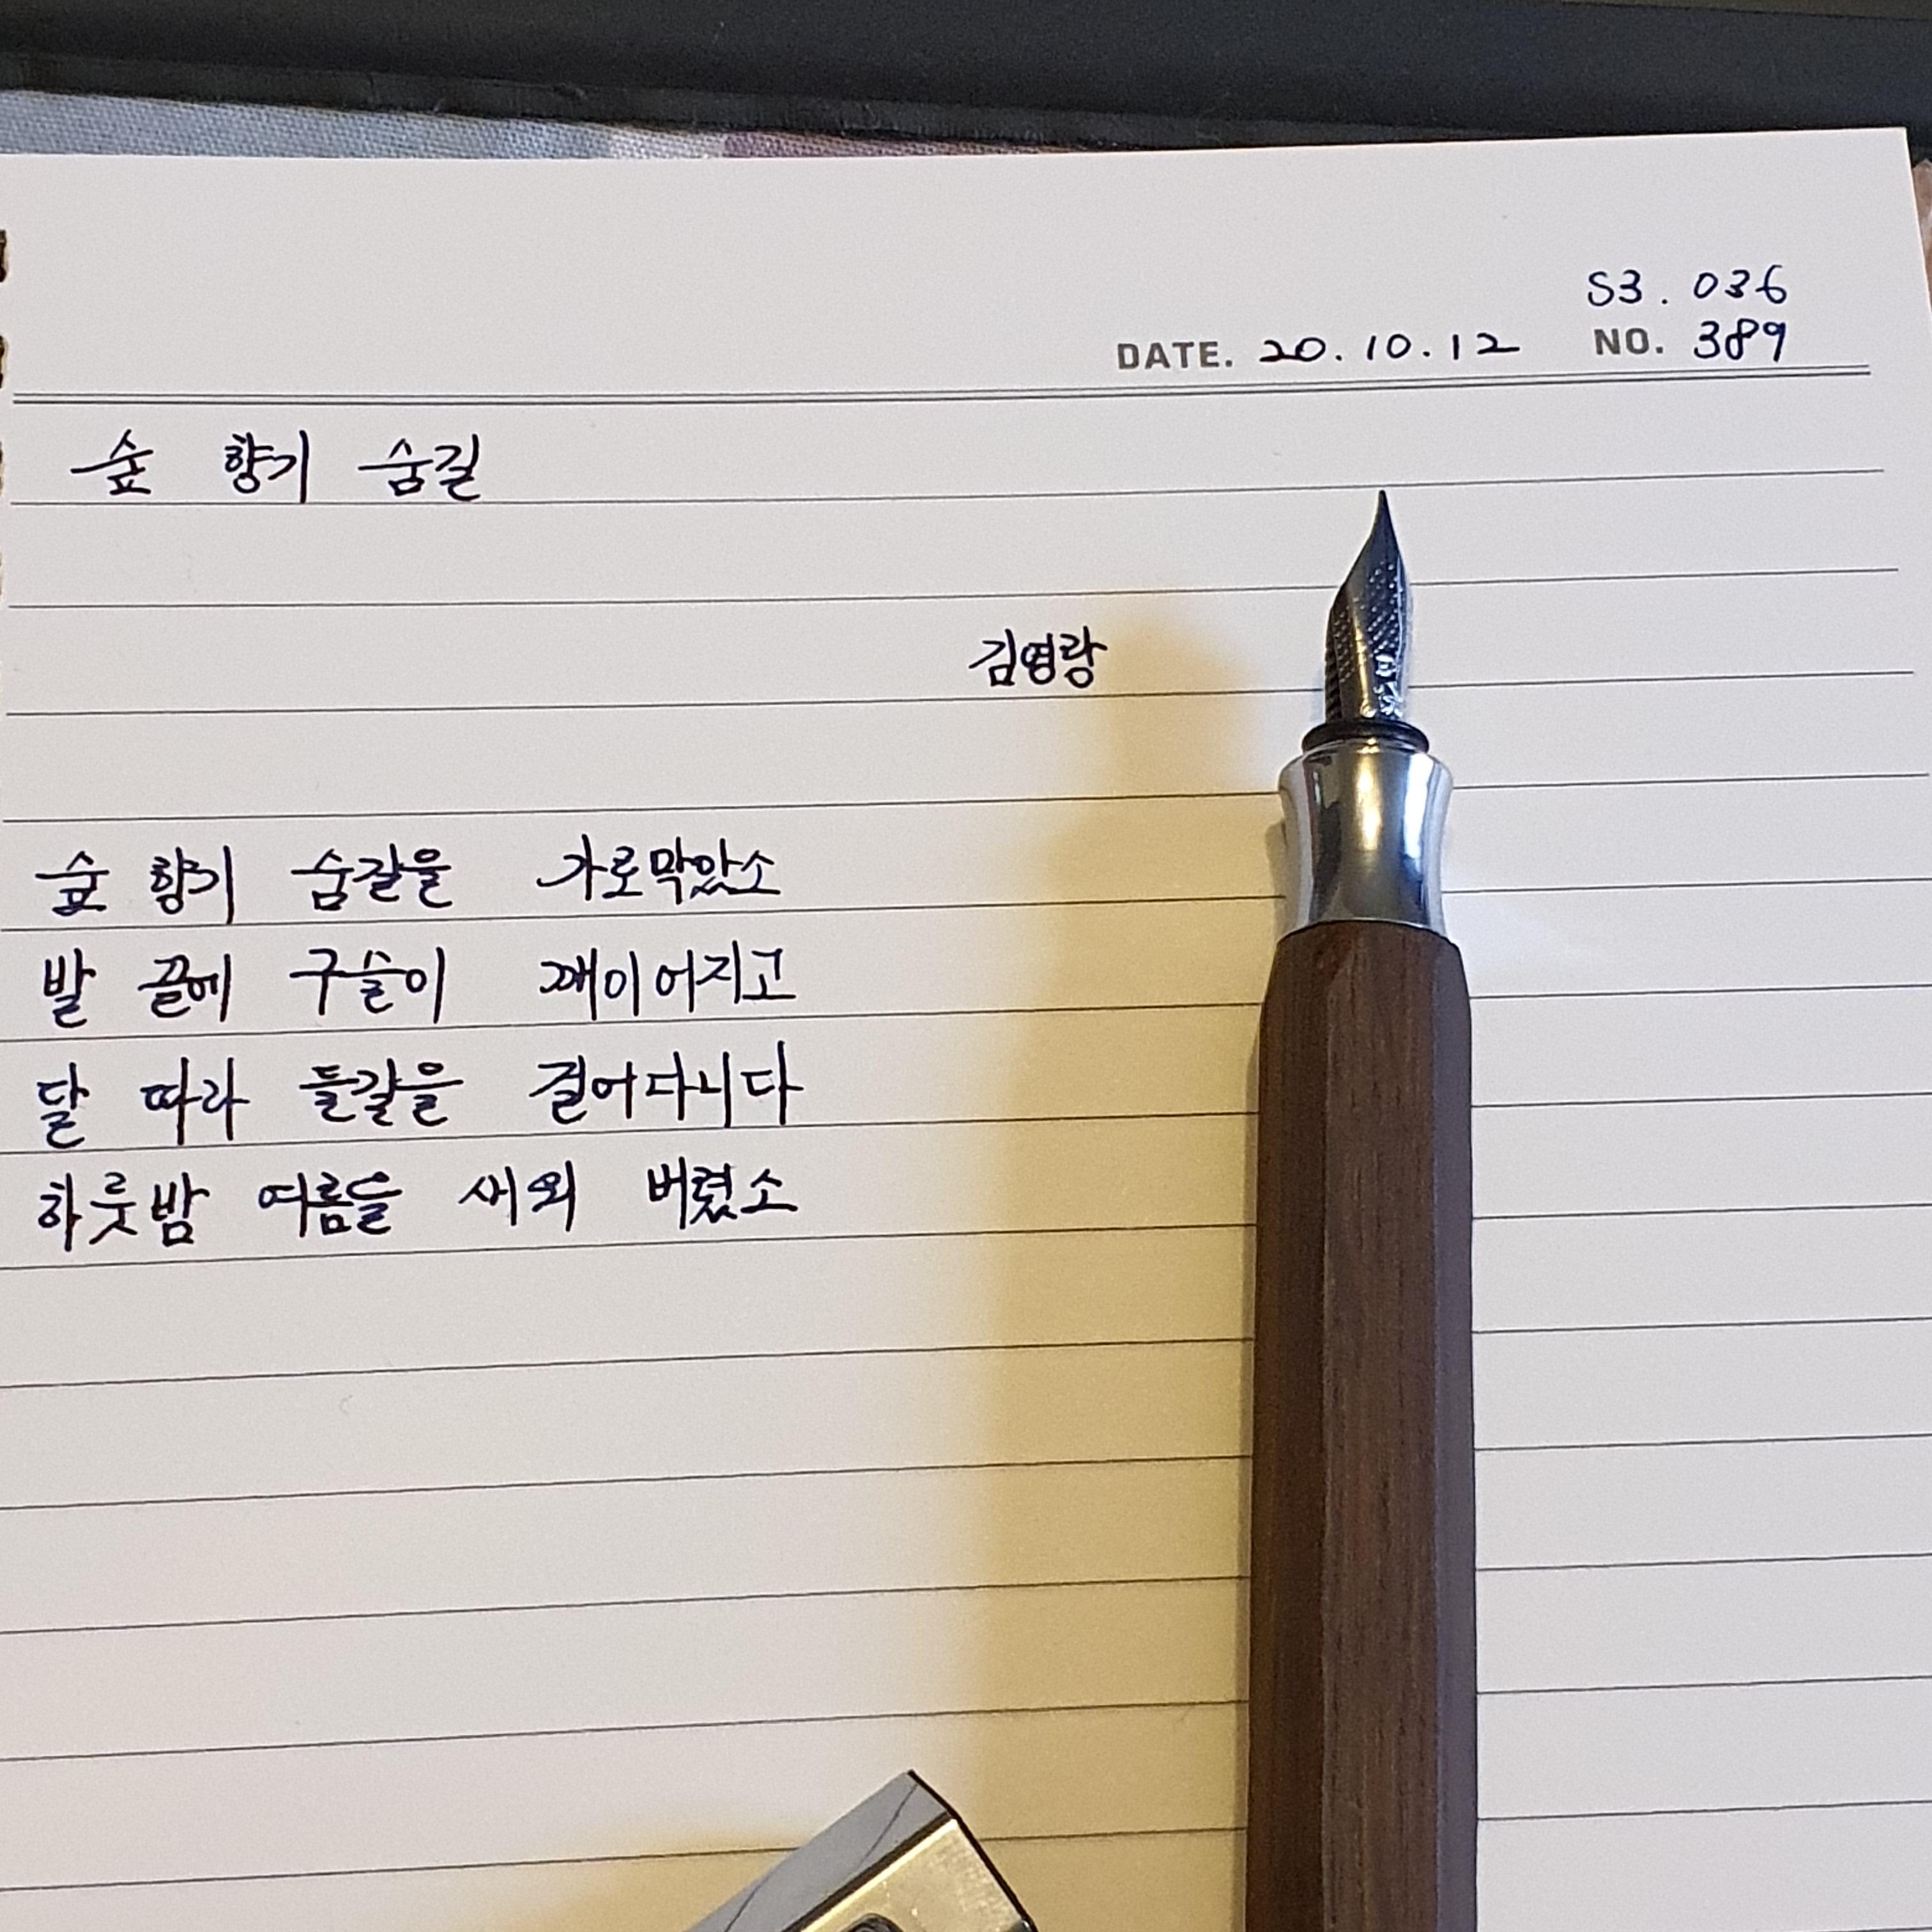 S3. 036
DATE. 20.10.12 NO. 389
숲 향기 숨길
김영랑
숲 향기 숨길을 가로막았소
발 끝에 구슬이 깨이어지고
달 따라 들길을 걸어다니다
하룻밤 여름을 새워 버렸소